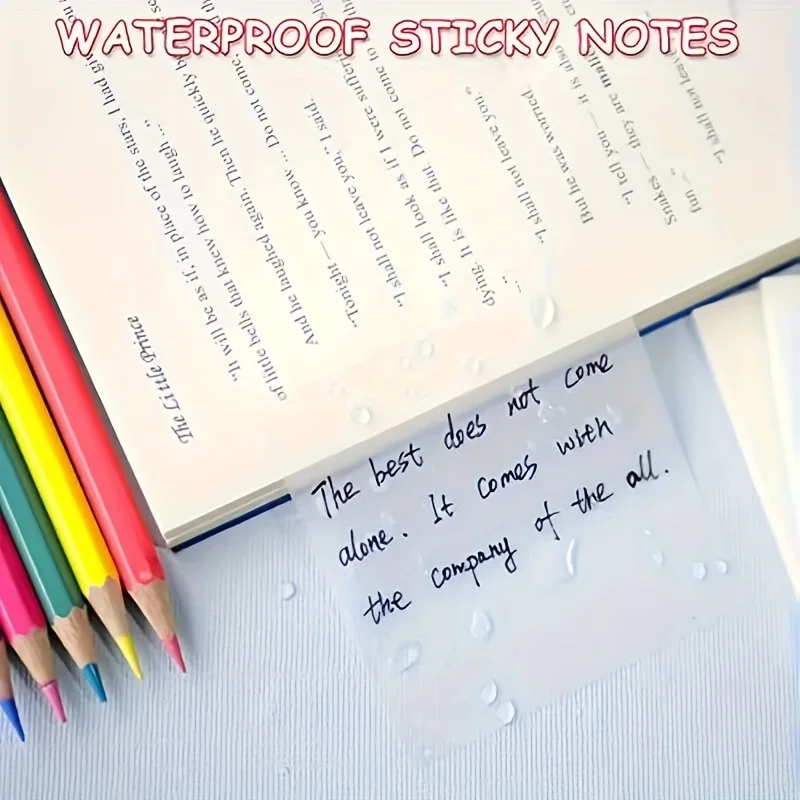 WATERPROOF STICKY NOTES
The Little Prince
"It will be as if, in place of the stars, I had
of little bells that knew how to laugh ..."
And he laughed again. Then he quickly
"Tonight — you know ... Do not come.
"I shall not leave you," I said.
"I shall look as if I were
dying. It is like that. Do not come to
..."
"I shall not leave you."
But he was worried.
"I tell you — it is also
Snakes — they are
fun ..."
"I shall not
The best does not come
alone. It comes with
the company of the all.